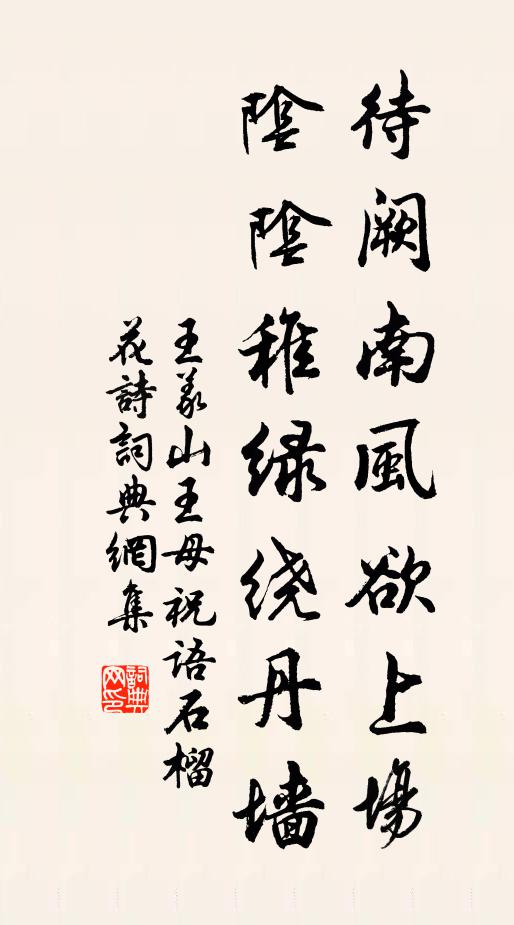 待阙南風欲上場
陰陰稚緑绕丹墙
王義山王母祝语石榴
花詩詞典網集
詞典
网印